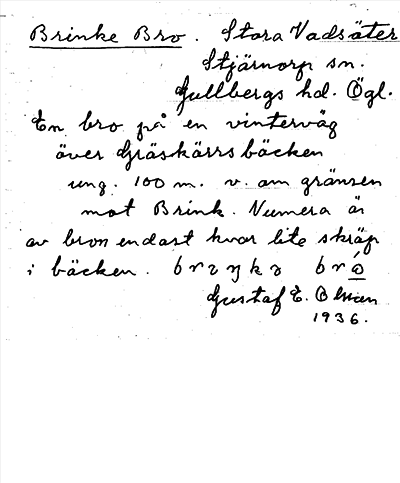 Brinke Bro. Stora Vadsäter
Stjärnorp sn.
Gullbergs hd. Ögl.
En bro på en vinterväg
över Gräskärrsbäcken
ung. 100 m. v. om gränsen
mot Brink. Numera är
av bron endast kvar lite skräp
i bäcken.
Gustaf E.
1936.